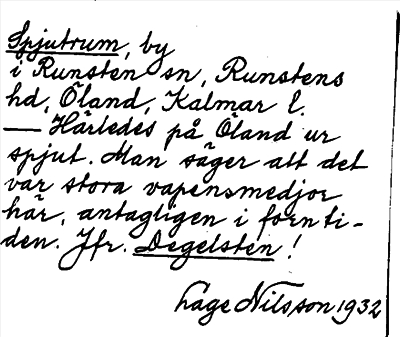 Spjutrum, by
i Runsten sn, Runstens
hd, Öland, Kalmar l.
— Härledes på Öland ur
spjut. Man säger att det
var stora vapensmedjor
här, antagligen i fornti-
den. Jfr. Degelsten!
Lage Nilsson 1932